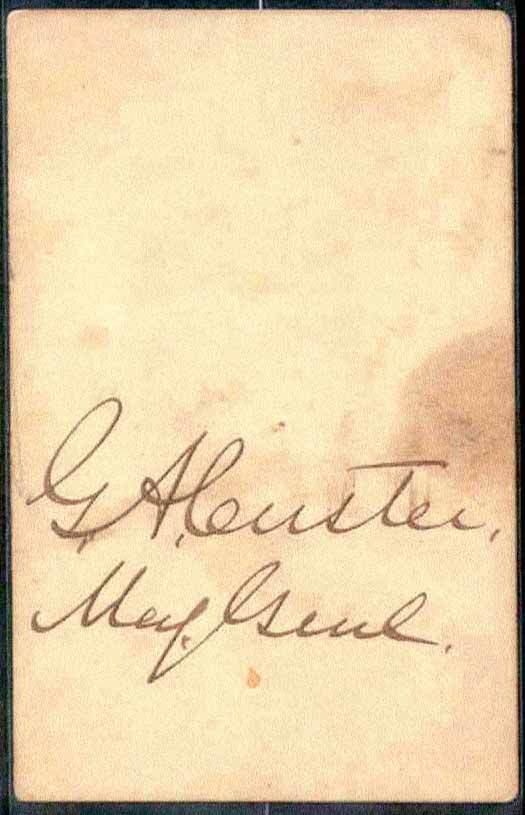 G. A. Custer,
Maj. Genl.